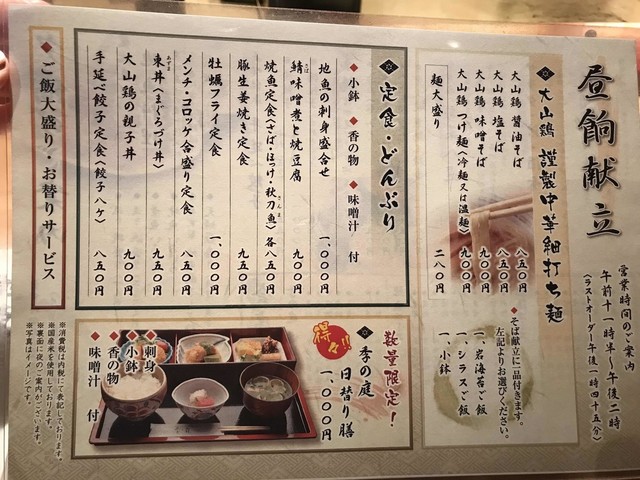 昼餉献立
営業時間のご案内
午前十一時半〜午後二時
(ラストオーダー午後一時四十五分)
大山鶏 謹製中華細打ち麺
大山鶏 醤油そば 八五〇円
大山鶏 塩そば 八五〇円
大山鶏 味噌そば 九〇〇円
大山鶏 つけ麺(冷麺又は温麺) 九〇〇円
麺大盛り 二八〇円
◆そば献立に一品付きます。
左記よりお選びください。
一、岩海苔ご飯
一、シラスご飯
一、小鉢
定食・どんぶり
◆小鉢 ◆香の物 ◆味噌汁 付
地魚の刺身盛合せ 一、〇〇〇円
鯖味噌煮と焼豆腐 九〇〇円
焼魚定食(さば・ほっけ・秋刀魚) 各八五〇円
豚生姜焼き定食 九五〇円
牡蠣フライ定食 一、〇〇〇円
メンチ・コロッケ合盛り定食 八五〇円
東丼(まぐろづけ丼) 九五〇円
大山鶏の親子丼 九〇〇円
手延べ餃子定食(餃子八ケ) 八五〇円
◆ご飯大盛り・お替りサービス
数量限定!
得々!!
季の庭 日替り膳
一、〇〇〇円
◆刺身
◆小鉢
◆香の物
◆味噌汁 付
※消費税は内税にて表記しております。
※国産米を使用しております。
※裏面に夜のご案内がございます。
※写真はイメージです。